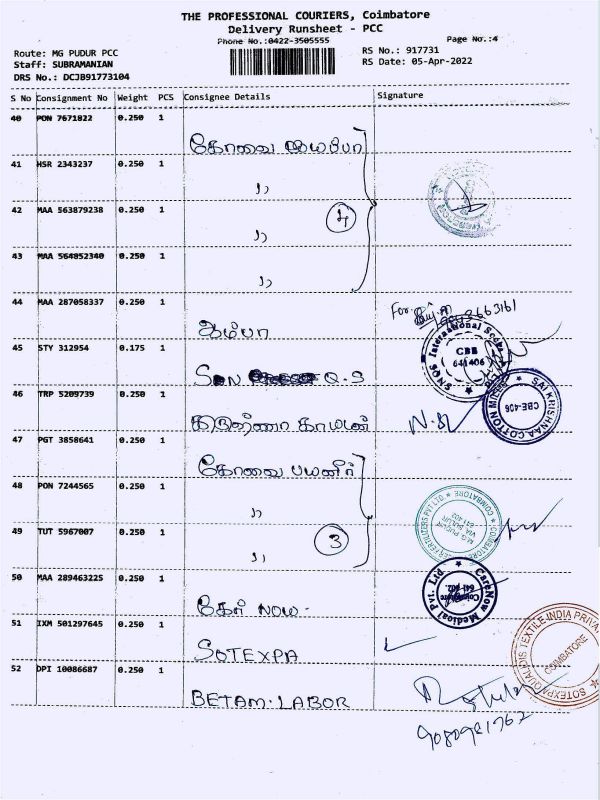 THE PROFESSIONAL COURIERS, Coimbatore
Delivery Runsheet - PCC
Phone No.:0422-3505555
Page No.:4
Route: MG PUDUR PCC
RS No.: 917731
Staff: SUBRAMANIAN
RS Date: 05-Apr-2022
DRS No.: DCJB91773104
S No Consignment No Weight PCS Consignee Details Signature
40 PON 7671822 0.250 1
கோவை
41 HSR 2343237 0.250 1
,,
42 MAA 563879238 0.250 1
4
,,
43 MAA 564852340 0.250 1
,,
44 MAA 287058337 0.250 1
For
45 STY 312954 0.175 1
SNQS International Socks
CBE
641406
Q.S
46 TRP 5209739 0.250 1
SAI KRISHNAA COTTON MILLS
CBE-406
47 PGT 3858641 0.250 1
கோவை
48 PON 7244565 0.250 1
,,
COIMBATORE
49 TUT 5967007 0.250 1
3
,,
50 MAA 289463225 0.250 1
CareNow Medical Pvt. Ltd.
Coimbatore
641 402.
கேர் NOW.
51 IXM 501297645 0.250 1
SOTEXPA
SOTEXPA QUALIDIS TEXTILE INDIA PRIVA
COIMBATORE
52 DPI 10086687 0.250 1
BETAM.LABOR